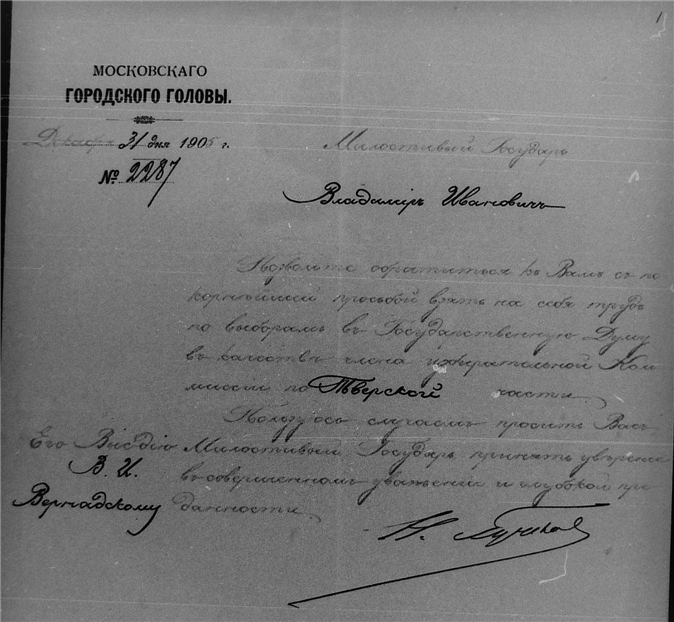 1
МОСКОВСКАГО
ГОРОДСКОГО ГОЛОВЫ.
Декабря 31 дня 1905 г.
№ 2287
Милостивый Государь
Владимiръ Ивановичъ
Позвольте обратиться къ Вамъ съ по
корнѣйшей просьбой взять на себя трудъ
по выборамъ въ Государственную Думу
въ качествѣ члена избирательной Ком
миссiи по Тверской части.
Пользуюсь случаемъ просить Васъ
Милостивый Государь принять увѣренiе
въ совершенномъ уваженiи и глубокой пре
данности.
Его Высодiю
В. И.
Вернадскому
Н.